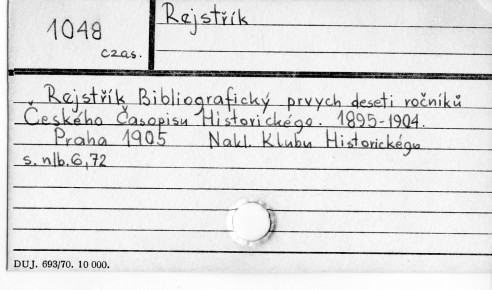 1048
czas.
Rejstřík
Rejstřík Bibliografický prvych deseti ročníků
Českého Časopisu Historického. 1895-1904.
Praha 1905 Nakl. Klubu Historickégo
s. nlb. 6, 72
DUJ. 693/70. 10 000.